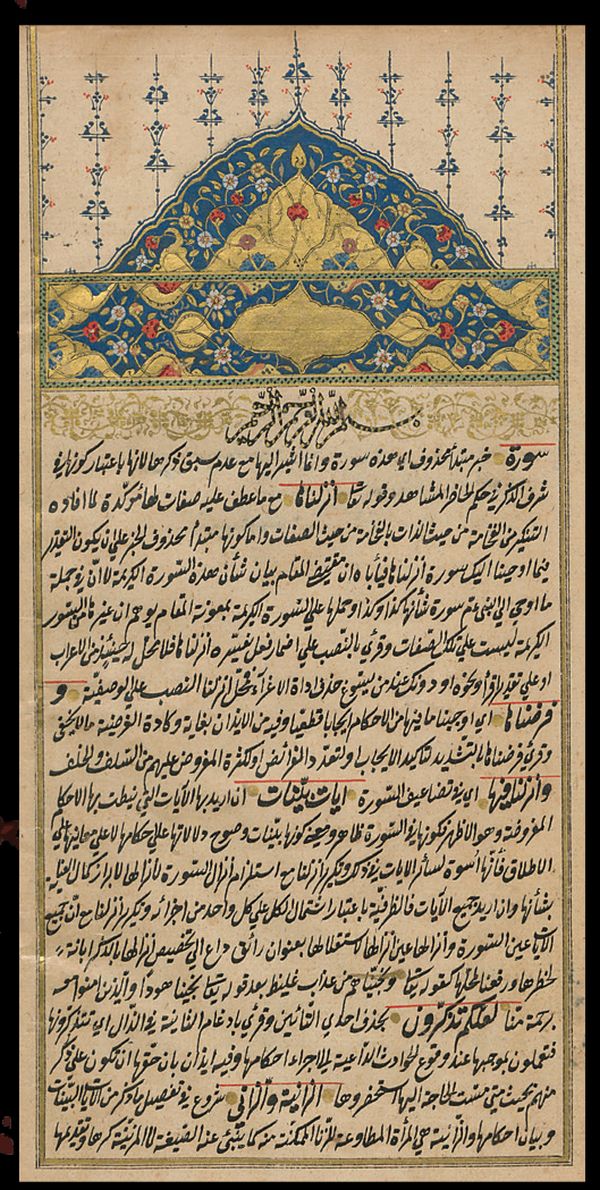 بسم الله الرحمن الرحيم
سورة خبر مبتدأ محذوف اي هذه سورة وانما اشير اليها مع عدم سبق ذكرها لانها باعتبار كونها في
شرف الذكر في حكم الحاضر المشاهد وقوله تعالى انزلناها مع ما عطف عليه صفات لها مؤكدة لما افاده
التنكير من الفخامة من حيث الذات بالفخامة من حيث الصفات واما كونها مبتدأ محذوف الخبر على ان يكون التقدير
فيما اوحينا اليك سورة انزلناها فيأباه ان مقتضى المقام بيان شأن هذه السورة الكريمة لا ان في جملة
ما اوحي الى النبي عم سورة شأنها كذا وكذا وحملها على السورة الكريمة بمعونة المقام يوهم ان غيرها من السور
الكريمة ليست على تلك الصفات وقرئ بالنصب على اضمار فعل يفسره انزلناها فلا محل له حينئذ من الاعراب
او على تقدير اقرأ ونحوه او دونك عند من يسوغ حذف اداة الاغراء فمحل انزلنا النصب على الوصفية و
فرضناها اي اوجبنا ما فيها من الاحكام ايجابا قطعيا وفيه من الايذان بغاية وكادة الفرضية ما لا يخفى
وقرئ فرضناها بالتشديد لتاكيد الايجاب او لتعدد الفرائض او لكثرة المفروض عليهم من السلف والخلف
وانزلنا فيها اي في تضاعيف السورة ايات بينات ان اريد بها الايات التي نيطت بها الاحكام
المفروضة وهو الاظهر فكونها في السورة ظاهر ومعنى كونها بينات وضوح دلالاتها على احكامها لا على معانيها على
الاطلاق فانها اسوة لسائر الايات في ذلك وتكرير انزلنا مع استلزام انزال السورة لانزالها لابراز كمال العناية
بشأنها وان اريد جميع الآيات فالظرفية باعتبار اشتمال الكل على كل واحد من اجزائه وتكرير انزلنا مع ان جميع
الآيات عين السورة وانزالها عين انزالها لاستقلالها بعنوان رائق داع الى تخصيص انزالها بالذكر ابانة
لخطرها ورفعا لمحلها كقوله تعالى ونجيناهم من عذاب غليظ بعد قوله تعالى نجينا هودا والذين امنوا معه
برحمة منا لعلكم تذكرون بحذف احدى التائين وقرئ بادغام الثانية في الذال اي تتذكرونها
فتعملون بموجبها عند وقوع الحوادث الداعية الى اجراء احكامها وفيه ايذان بان حقها ان تكون على ذكر
منهم بحيث متى مست الحاجة اليها استحضروها الزانية والزاني شروع في تفصيل ما ذكر من الآيات البينات
وبيان احكامها والزانية هي المرأة المطاوعة للزنا الممكنة منه كما ينبئ عنه الصيغة لا المزنية كرها وتقديمها